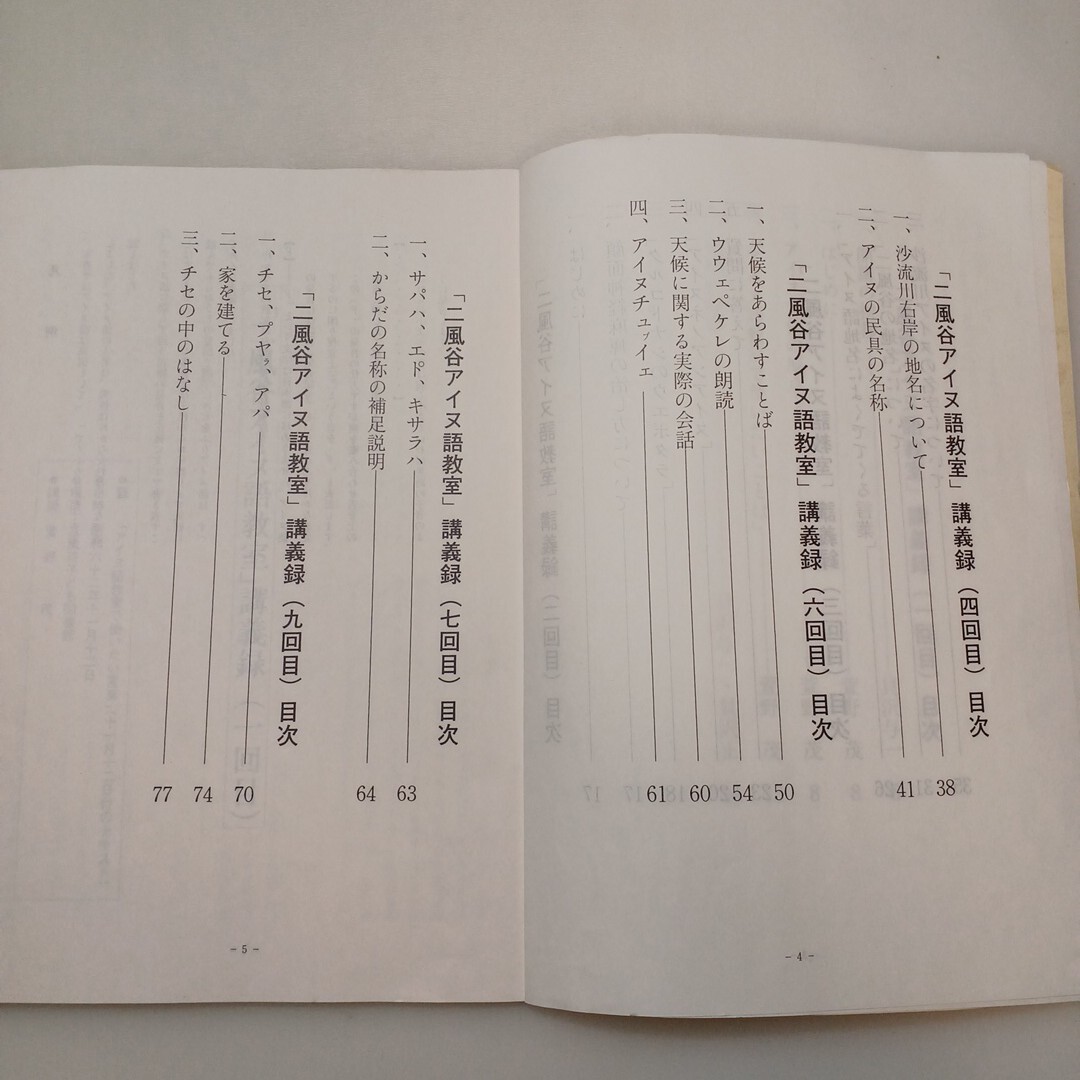 「二風谷アイヌ語教室」講義録（四回目）目次
一、沙流川右岸の地名について 38
二、アイヌの民具の名称 41
「二風谷アイヌ語教室」講義録（六回目）目次
一、天候をあらわすことば 50
二、ウウェペケレの朗読 54
三、天候に関する実際の会話 60
四、アイヌチュプイェ 61
- 4 -
「二風谷アイヌ語教室」講義録（七回目）目次
一、サパハ、エト゚、キサラハ 63
二、からだの名称の補足説明 64
「二風谷アイヌ語教室」講義録（九回目）目次
一、チセ、プヤㇻ、アパ 70
二、家を建てる 74
三、チセの中のはなし 77
- 5 -